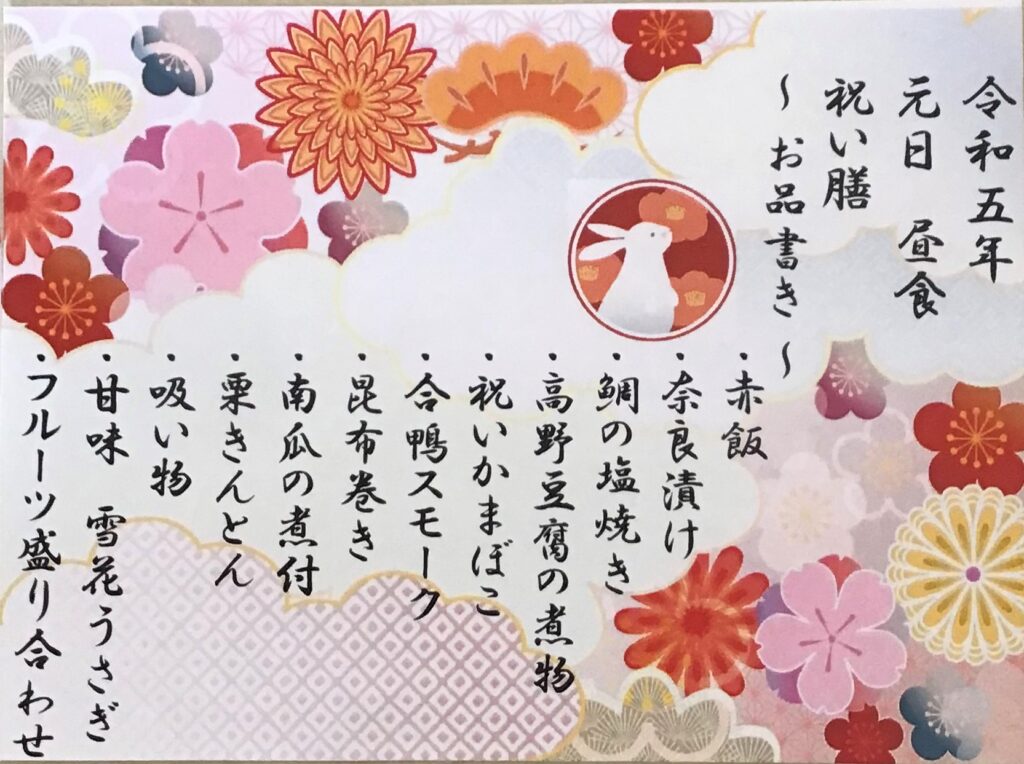 令和五年
元日　昼食
祝い膳
～お品書き～
・赤飯
・奈良漬け
・鯛の塩焼き
・高野豆腐の煮物
・祝いかまぼこ
・合鴨スモーク
・昆布巻き
・南瓜の煮付
・栗きんとん
・吸い物
・甘味　雪花うさぎ
・フルーツ盛り合わせ